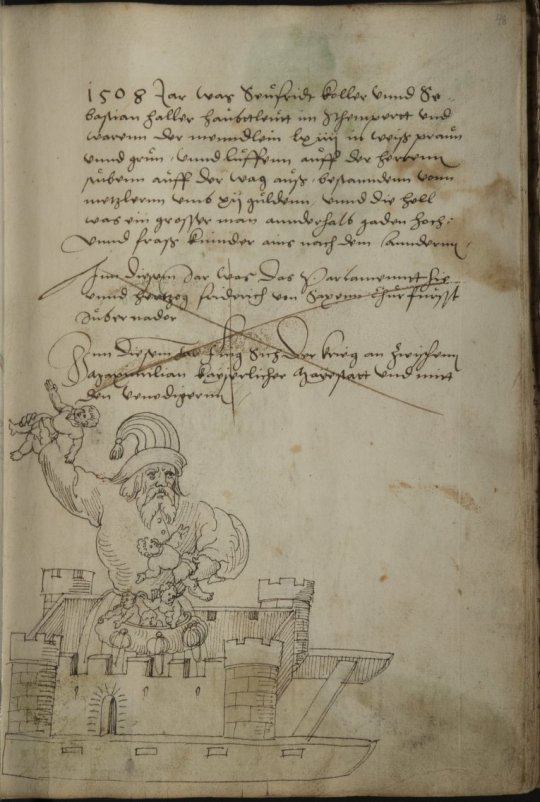 48
1508 Jar war Seufridt Koller vnnd Se-
bastian Haller haubttleutt im Schempertt vnd
warenn der menndlein lx iiij in weiß praun
vnnd grün, vnnd luffenn auff der herrenn
stubenn auff der wag auß, bestanndenn vonn
metzlernn vmb xij guldenn, vnnd die hell
was ein grosser man annderhalb gaden hoch:
vnnd fraß kinnder ains nach dem anndernn,
Inn disem Jar was das Parlamennt hie
vnnd hertzog friderich von Saxenn Churfürst
Gubernador
Inn disem Jar fing Sich der krieg an zwischenn
Maximilian kayserlicher Mayestatt vnd mit
den Venedigernn